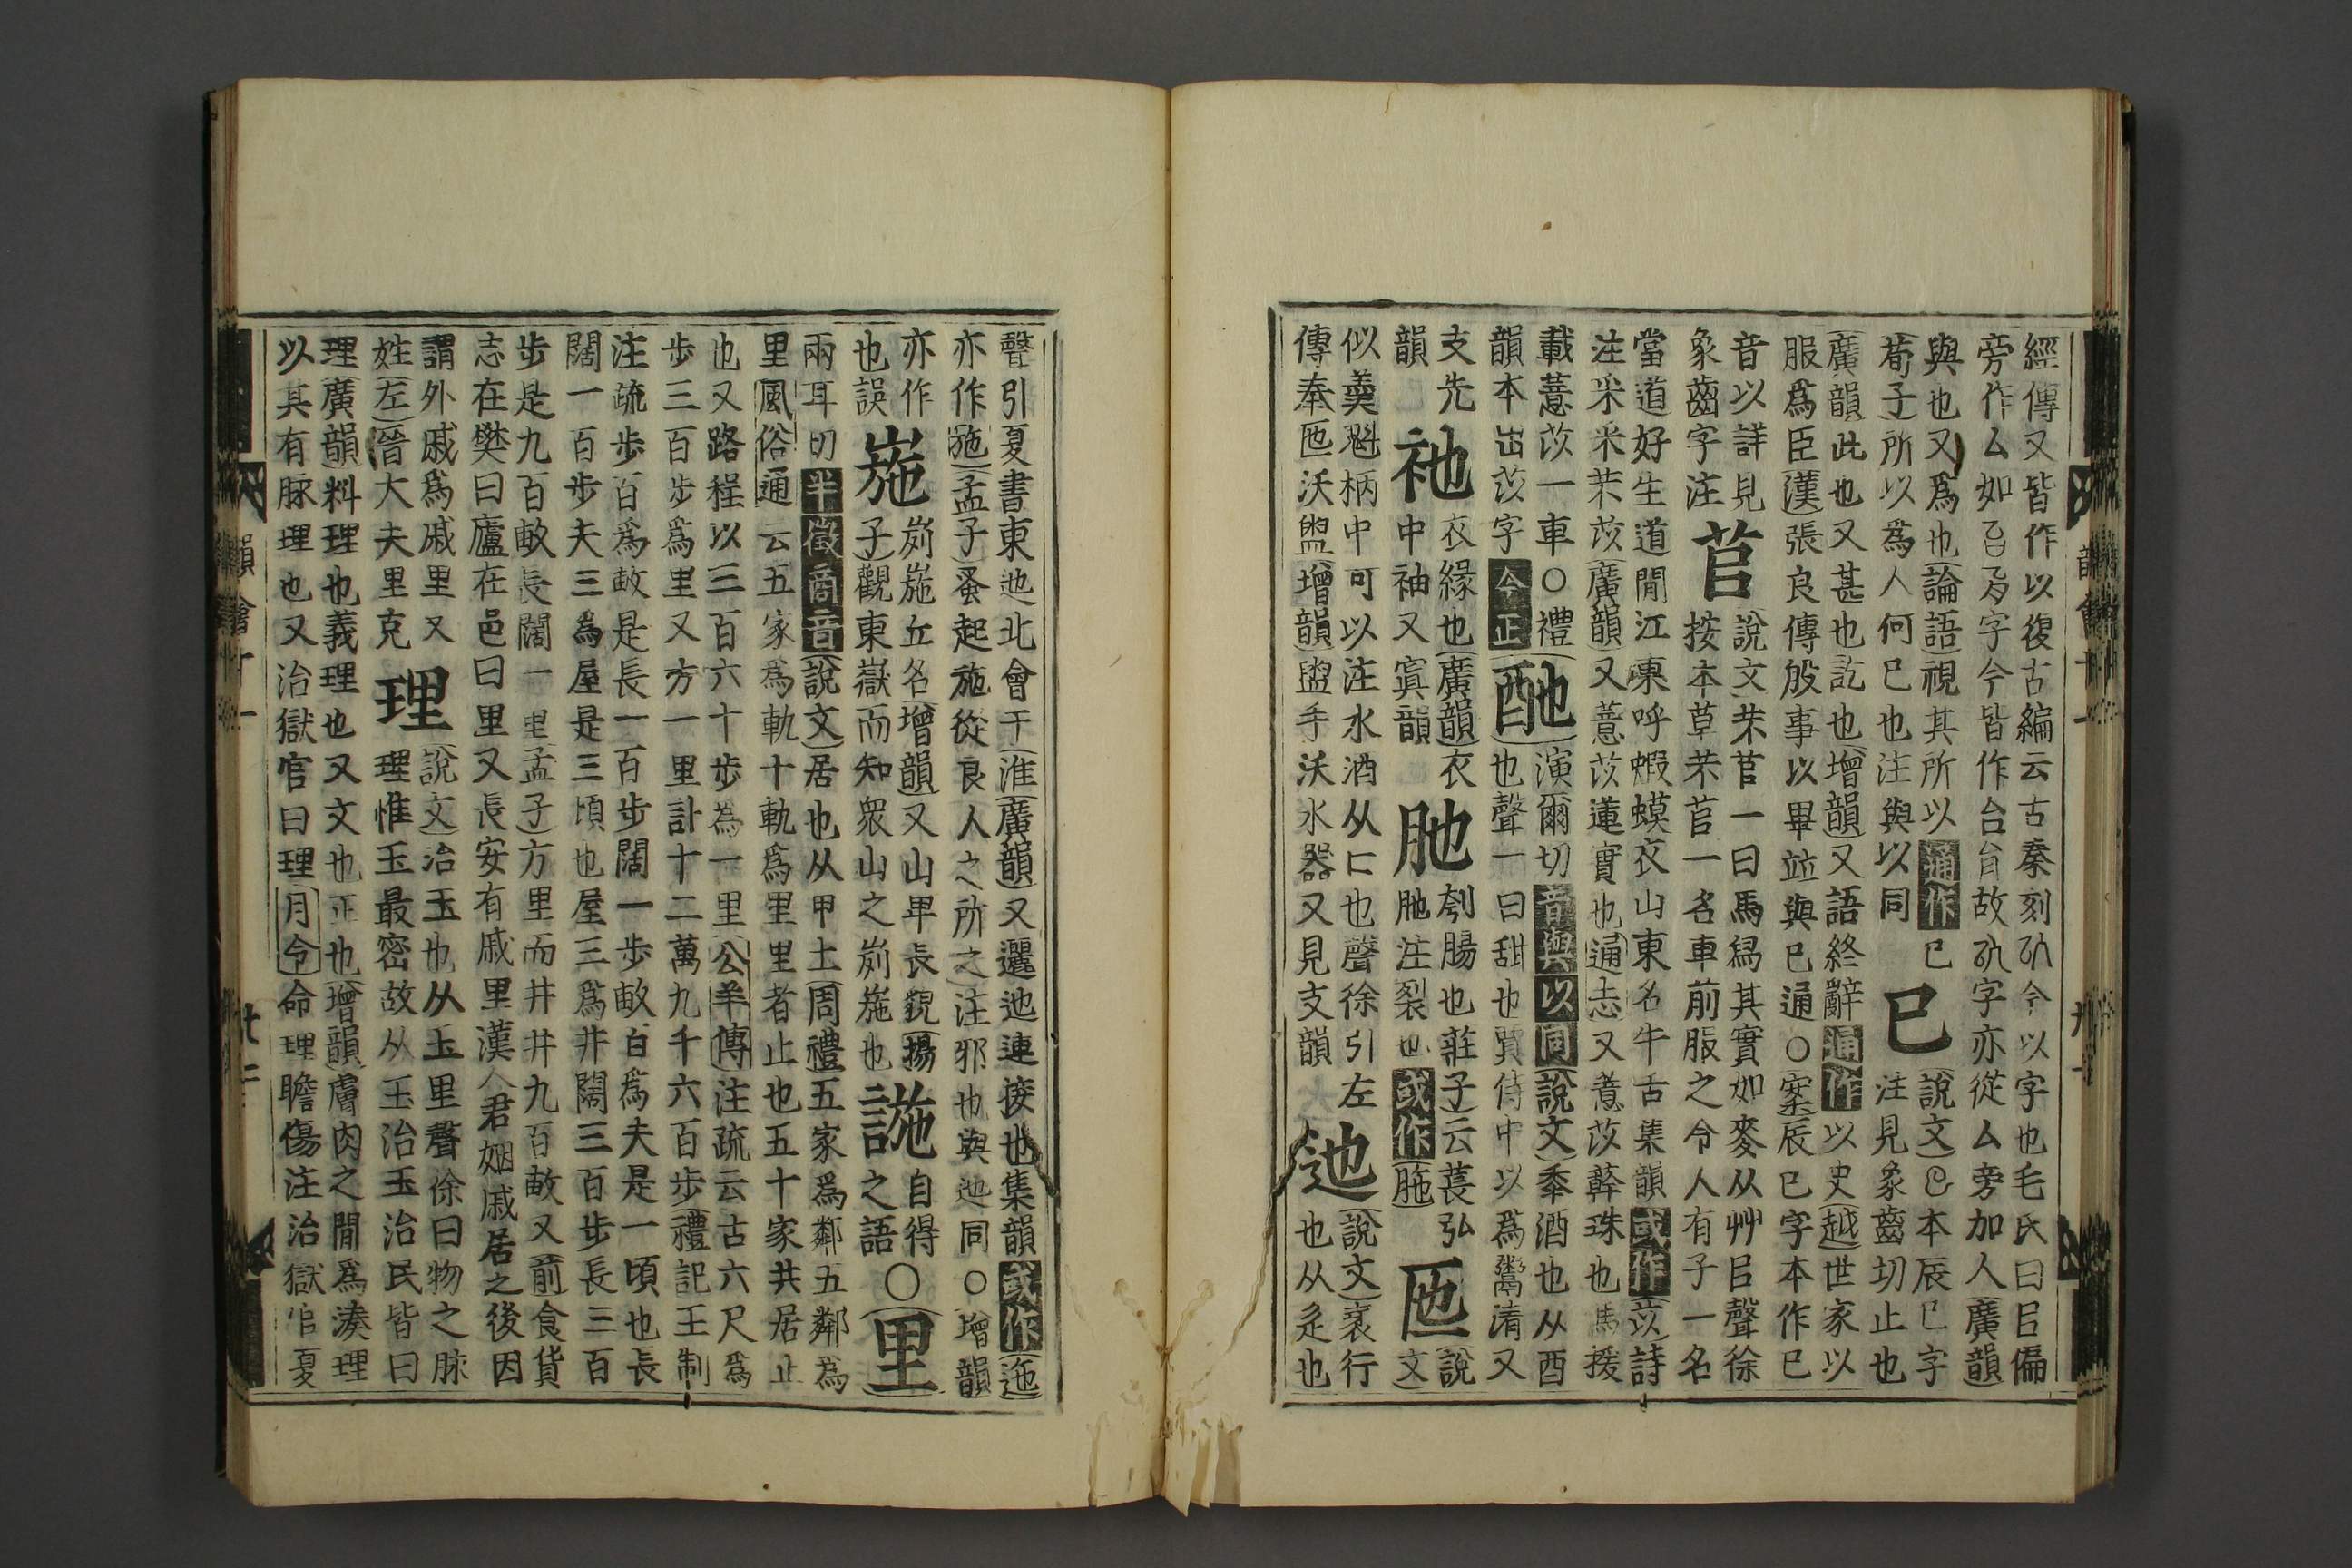 經傳又皆作以復古編云古秦刻㠯今以字也毛氏曰㠯偏
旁作厶如㠯字今皆作台㠯故㠯字亦從厶旁加人廣韻
與也又爲也論語視其所以通作已
荀子所以爲人何已也注與以同
已
說文本辰巳字
注見象齒切止也
廣韻此也又甚也訖也增韻又語終辭通作以史越世家以
服爲臣漢張良傳殷事以畢竝與已通○案辰巳字本作已
音以詳見
象齒字注
苢
說文芣苢一曰馬舄其實如麥从艸㠯聲徐
按本草芣苢一名車前服之令人有子一名
當道好生道間江東呼蝦蟆衣山東名牛舌集韻或作苡詩
注采采芣苡廣韻又薏苡蓮實也通志又薏苡薏珠也馬援
載薏苡一車○禮
韻本出苡字今正
酏
演爾切音與以同說文黍酒也从酉
也聲一曰甜也賈侍中以爲鬻清又
支先
韻
衪
衣緣也廣韻衣
中袖又寘韻
肔
刳腸也莊子云萇弘
肔注裂也或作胣
匜
說
文
似羹魁柄中可以注水酒从匚也聲徐引左
傳奉匜沃盥增韻盥手沃水器又見支韻
迆
說文衺行
也从辵也
聲引夏書東迆北會于淮廣韻又邐迆連接也集韻或作迤
亦作施孟子蚤起施從良人之所之注邪也與迆同○增韻
亦作
也誤
崺
峛崺丘名增韻又山卑長貌揚
子觀東嶽而知衆山之峛崺也
訑
自得
之語
○
里
兩耳切半徵商音說文居也从田土周禮五家爲鄰五鄰爲
里風俗通云五家爲軌十軌爲里里者止也五十家共居止
也又路程以三百六十步為一里公羊傳注疏云古六尺爲
步三百步爲里又方一里計十二萬九千六百步禮記王制
注疏步百爲畝是長一百步闊一步畝百爲夫是一頃也長
闊一百步夫三爲屋是三頃也屋三爲井闊三百步長三百
步是九百畝長闊一里孟子方里而井井九百畝又前食貨
志在樊曰廬在邑曰里又長安有戚里漢人君姻戚居之後因
謂外戚爲戚里又
姓左晉大夫里克
理
說文治玉也从玉里聲徐曰物之脉
理惟玉最密故从玉治玉治民皆曰
理廣韻料理也義理也又文也正也增韻膚肉之間爲湊理
以其有脉理也又治獄官曰理月令命理瞻傷注治獄官夏
韻會十一
韻會十一